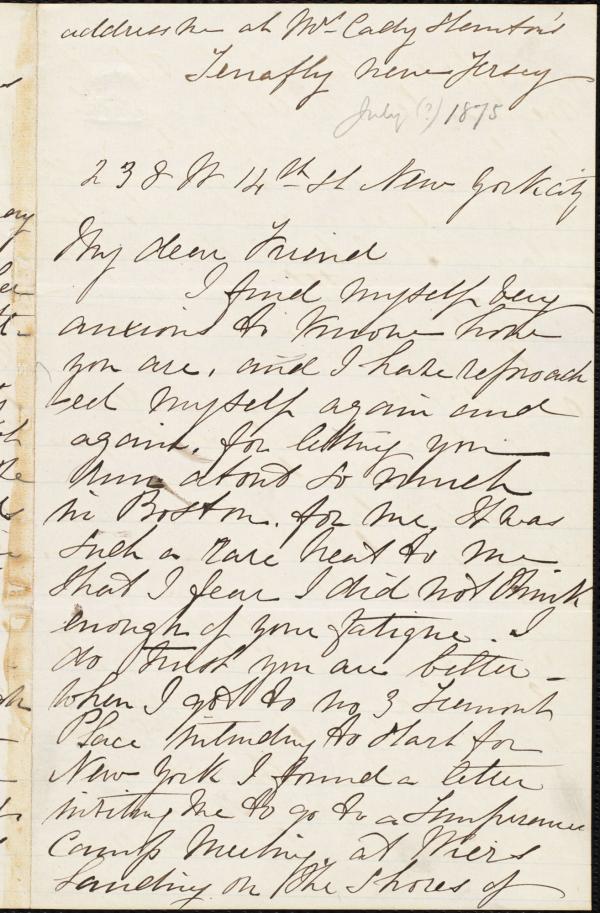 address me at Mrs Cady Stanton's
Tenafly New Jersey
July (?) 1875
238 W 14th St New York city
My dear Friend
I find myself very
anxious to know how
you are, and I have reproach
-ed myself again and
again, for letting you
run about so much
in Boston, for me, It was
such a rare treat to me
that I fear I did not think
enough of your fatigue. I
do trust you are better -
when I got to no 3 Tremont
Place intending to start for
New York I found a letter
inviting me to go to a Temperance
Camp Meeting, at Wiers
Landing on the Shores of